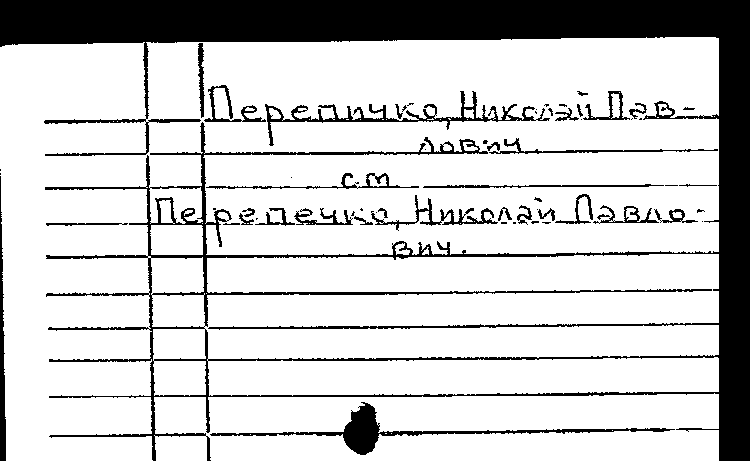 Перепичко, Николай Пав-
лович.
см
Перепечко, Николай Павло-
вич.